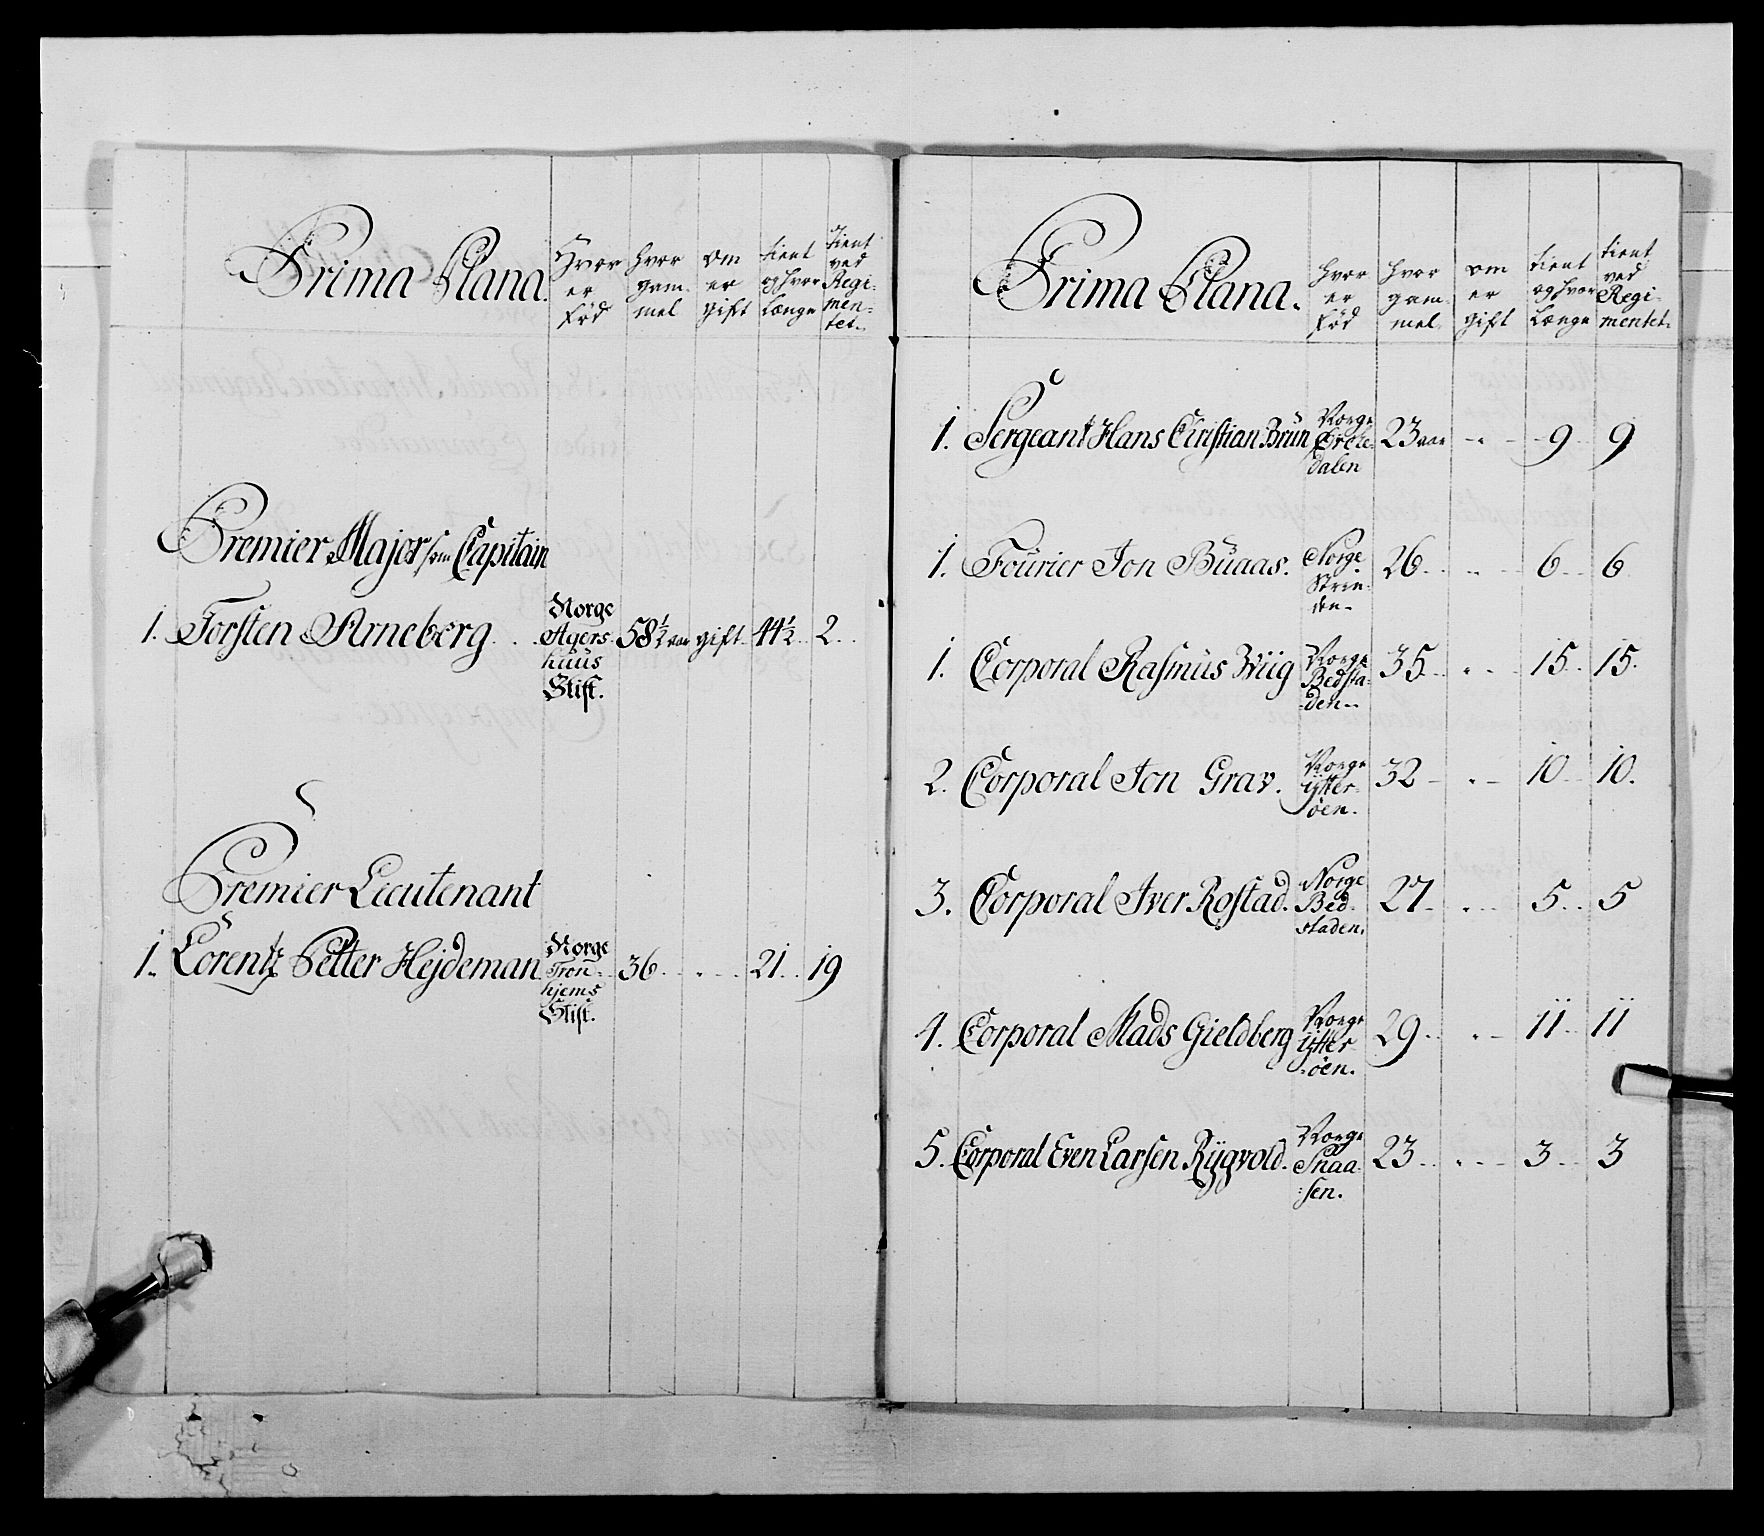 Prima Plana.
Hvor er Fød
hvor gam- mel
om er gift
tient og hvor Længe
Tient ved Regi- men- tet.
Premier Major som Capitain
1. Torsten Arneberg. Norge Agers- huus Stift. 58½ aar gift. 44½ 2.
Premier Lieutenant
1. Lorentz Petter Hejdeman Norge Tron- hjems Stift. 36. 21. 19
Prima Plana.
hvor er Fød
hvor gam- mel.
om er gift
tient og hvor Længe
tient ved Regi- mentet.
1. Sergeant Hans Christian Brun Norge dalen 23 aar 9 9
1. Fourier Jon Buaas. Norge Strin- den 26. 6. 6
1. Corporal Rasmus Wiig Norge Bedsta- den 35. 15. 15.
2. Corporal Jon Grav. Norge Ytter- øen. 32 10 10.
3. Corporal Iver Rostad. Norge Bed- staden. 27 5. 5
4. Corporal Mads Gieldberg Norge Ytter- øen. 29 11 11
5. Corporal Even Larsen Rygvold. Norge Snaa- sen. 23 3 3